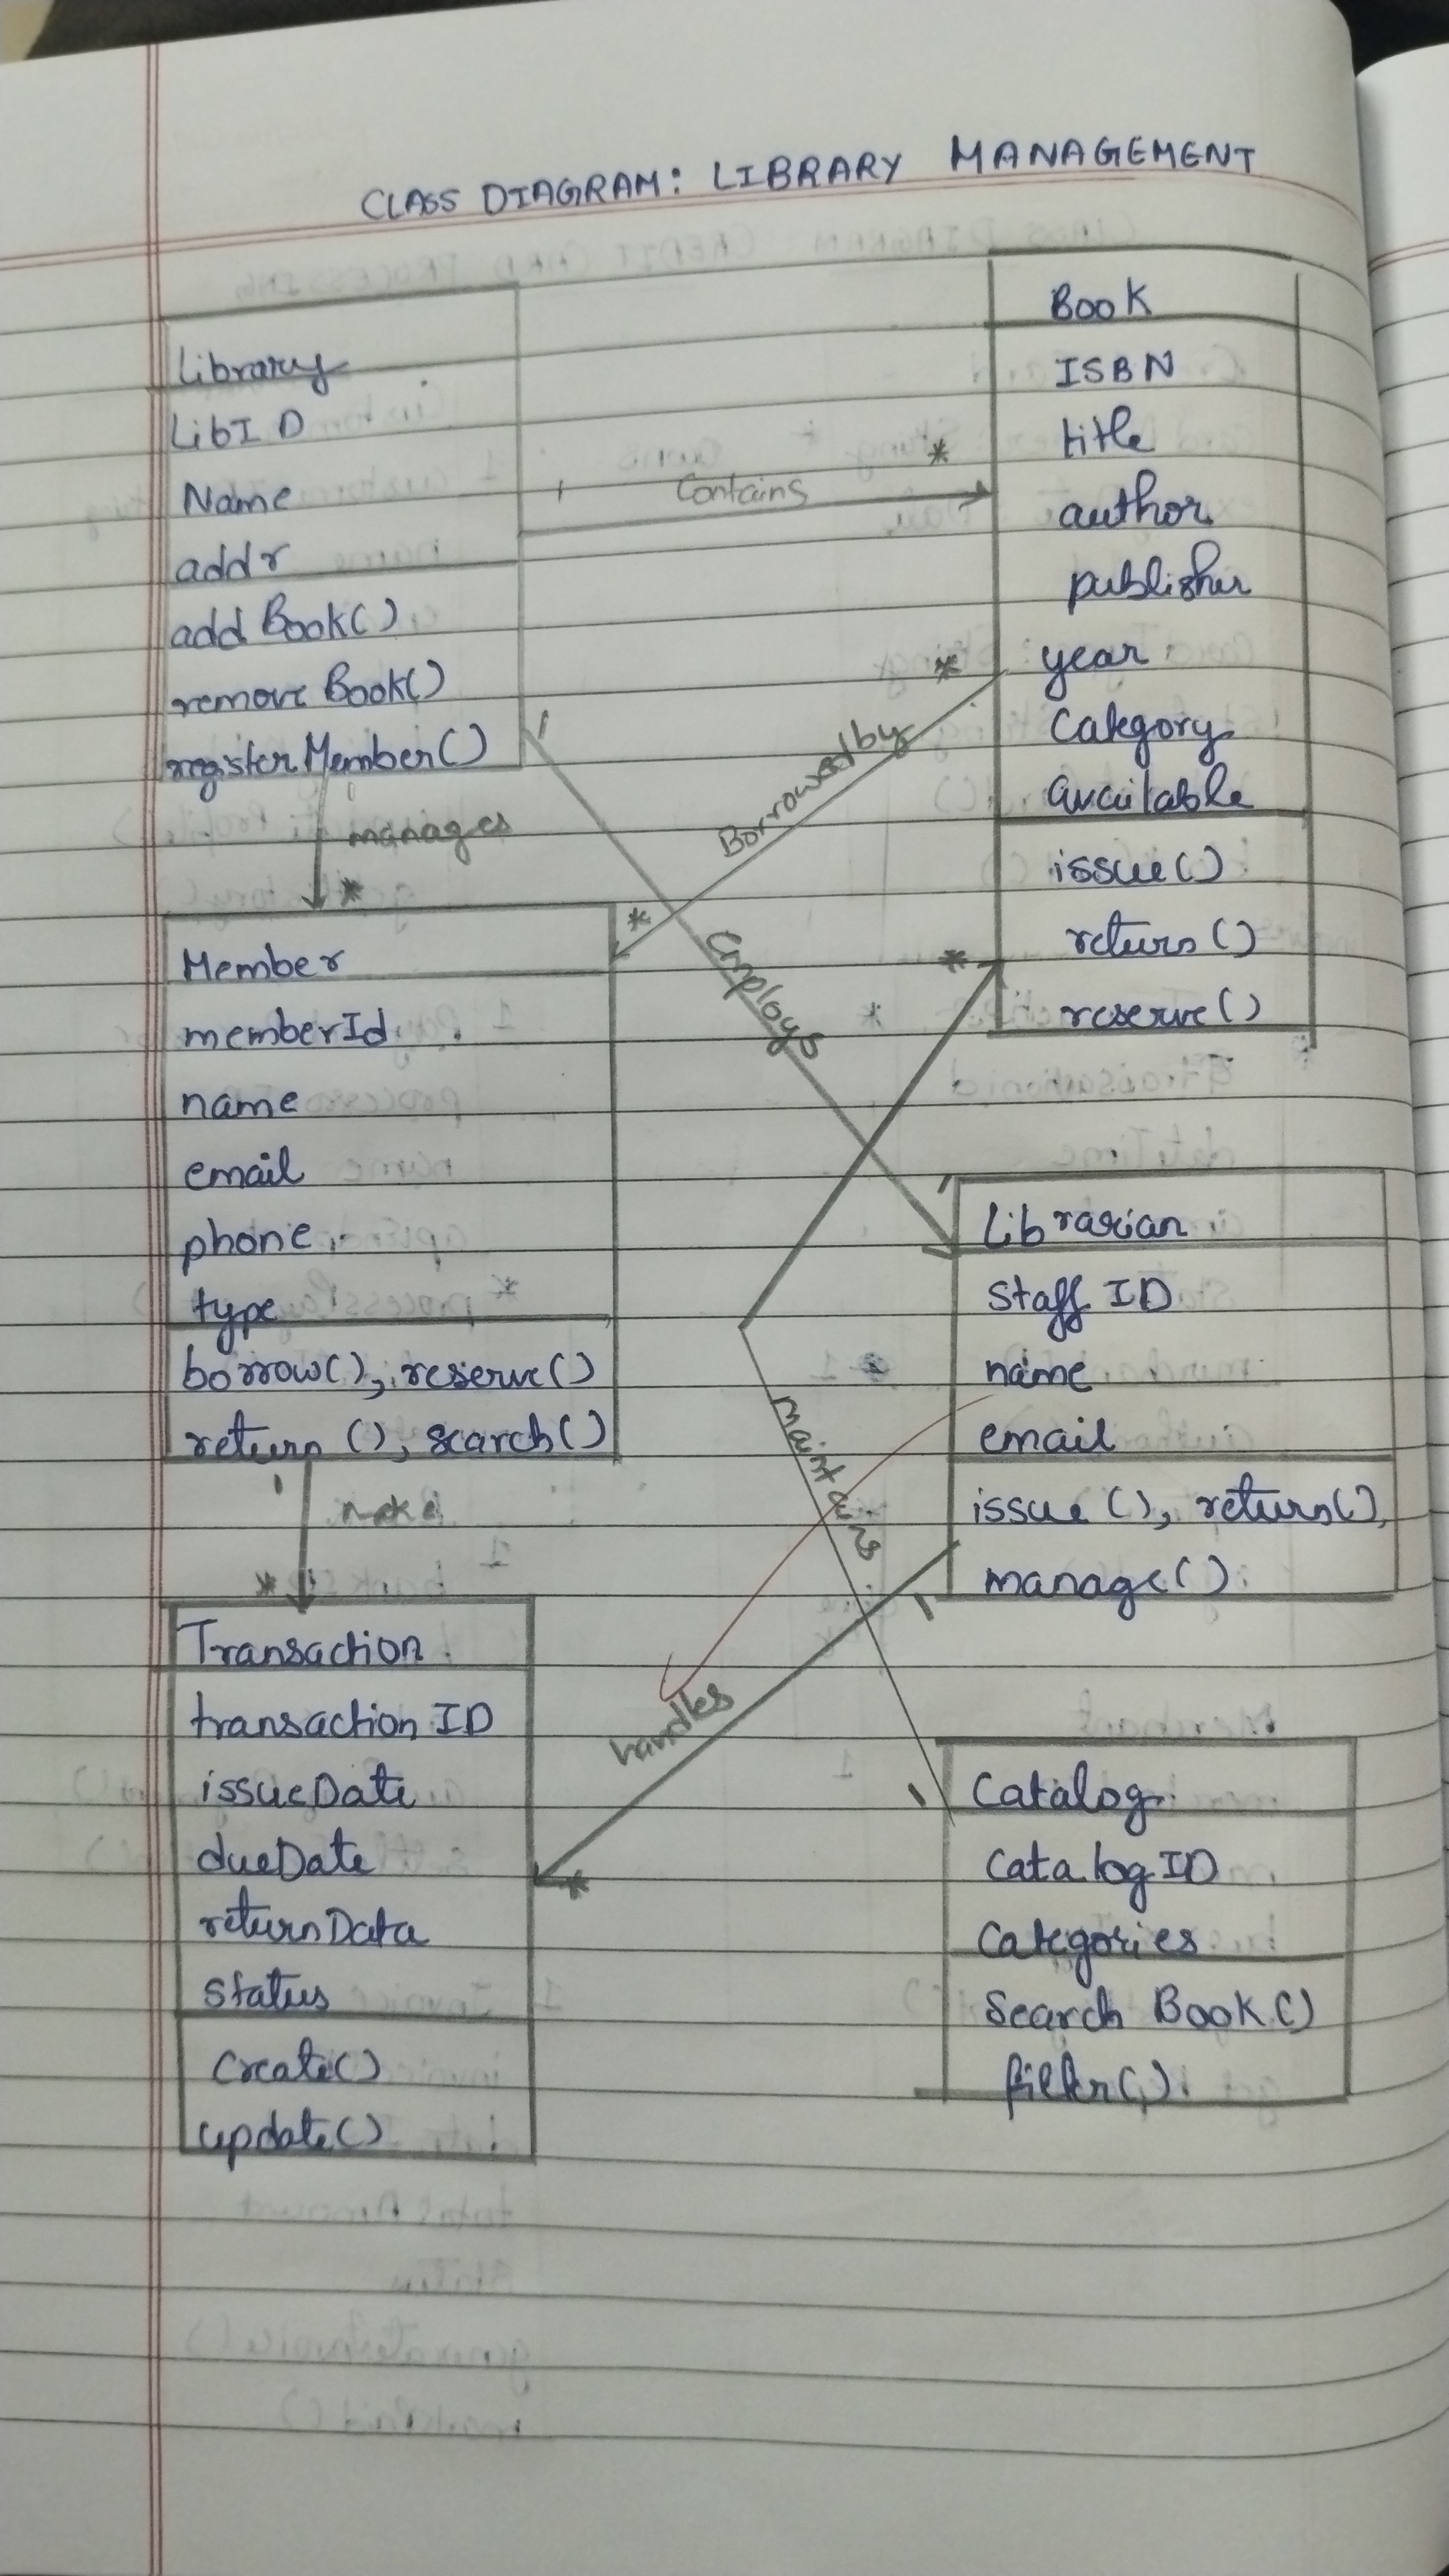 CLASS DIAGRAM: LIBRARY MANAGEMENT
Library
LibID
Name
addr
addBook()
remove Book()
registerMember()
1 Contains *
Book
ISBN
title
author
publisher
year
Category
available
issue()
return()
reserve()
manages
*
* Borrowed by *
1 Employs 1
Member
memberId
name
email
phone
type
borrow(), reserve()
return (), search()
Librarian
Staff ID
name
email
issue (), return(),
manage()
* maintains 1
1
*
1 handles *
Transaction
transaction ID
issueDate
dueDate
returnData
status
Create()
update()
Catalog
CatalogID
Categories
Search Book()
filter()